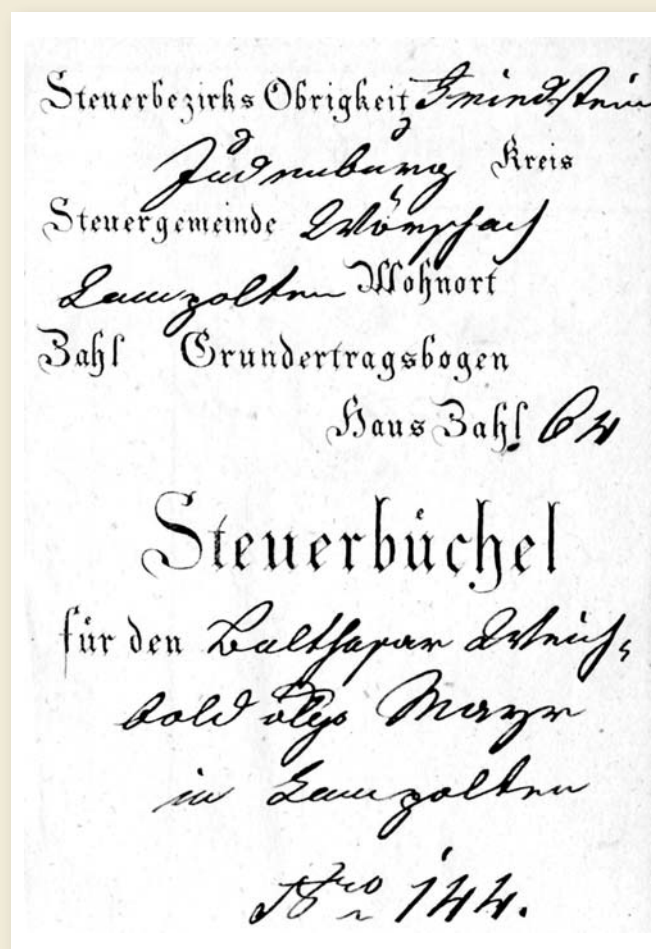 Steuerbezirks Obrigkeit Friedstein
Judenburg Kreis
Steuergemeinde Wörschach
Lampolten Wohnort
Zahl Grundertragsbogen
Haus Zahl 64
Steuerbüchel
für den Balthasar Weich-
bold Mayr
in Lampolten
Nro 144.